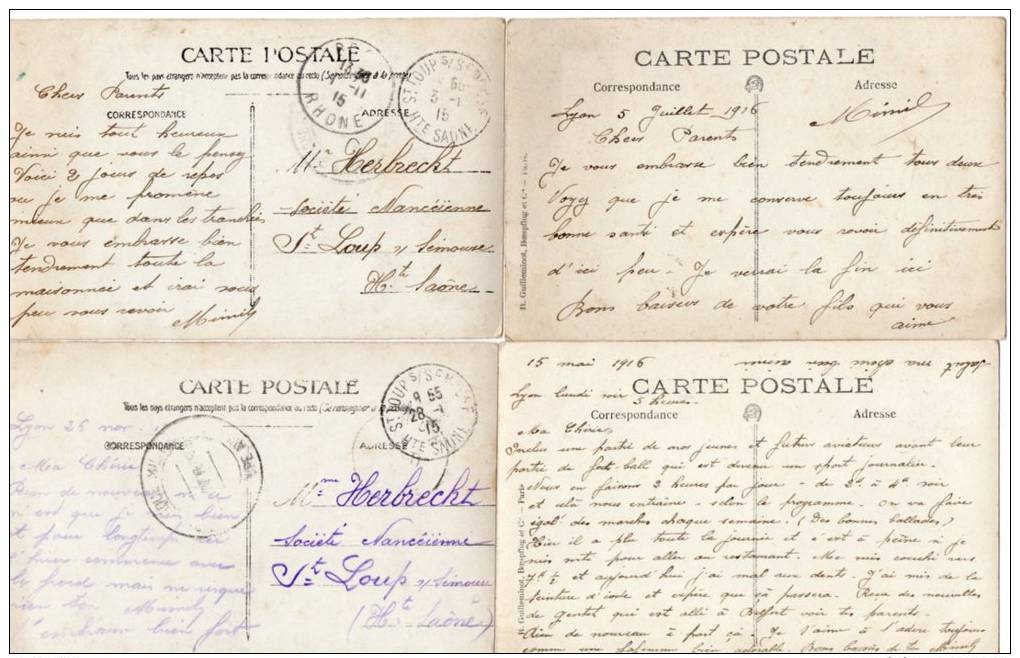 CARTE POSTALE
Tous les pays étrangers n'acceptent pas la correspondance au recto (Se renseigner à la poste)
Chers Parents
CORRESPONDANCE
ADRESSE
15
RHONE
ST LOUP S/SEMOUSE
15
HTE SAONE
Je suis tout heureux
ainsi que vous le pensez
Voici 2 jours de repos
où je me promène
mieux que dans les tranchées
Je vous embrasse bien
tendrement toute la
maisonnée et irai sous
peu vous revoir
Mimil
Mr Herbrecht
Société Nancéienne
St Loup s/ Semouse
Hte Saône
CARTE POSTALE
Correspondance
Adresse
Lyon 5 Juillet 1916
Mimil
Chers Parents
Je vous embrasse bien tendrement tous deux
Voyez que je me conserve toujours en très
bonne santé et espère vous revoir définitivement
d'ici peu - Je verrai la fin ici
Bons baisers de votre fils qui vous
aime
H. Guilleminot, Boespflug et Cie - Paris
CARTE POSTALE
Tous les pays étrangers n'acceptent pas la correspondance au recto (Se renseigner à la poste)
Lyon 26 nov.
CORRESPONDANCE
ADRESSE
ST LOUP S/SEMOUSE
28
15
HTE SAONE
Ma Chérie
Rien de nouveau
est que je bien
pour longtemps
commence avec
froid mais ne risque
rien ton Mimil
t'embrasse bien fort
Mme Herbrecht
Société Nancéienne
St Loup s/ Semouse
(Hte Saône)
15 mai 1916
Lyon lundi soir 5 heures.
CARTE POSTALE
Correspondance
Adresse
Ma Chérie,
Inclus une partie de nos jeunes et futurs aviateurs avant leur
partie de foot-ball qui est devenu un sport journalier.
Nous en faisons 2 heures par jour - de 2h à 4h soir
et cela nous entraîne - selon le programme on va faire
égal' des marches chaque semaine. (Des bonnes ballades)
Hier il a plu toute la journée et c'est à peine si je
suis sorti pour aller au restaurant. Me suis couché vers
et aujourd'hui j'ai mal aux dents. J'ai mis de la
teinture d'iode et espère que ça passera. Reçu des nouvelles
de Gentet qui est allé à Belfort voir tes parents.
Rien de nouveau à part ça. Je t'aime et t'adore toujours
comme une femme bien adorable. Bons baisers de ton Mimil
H. Guilleminot, Boespflug et Cie - Paris